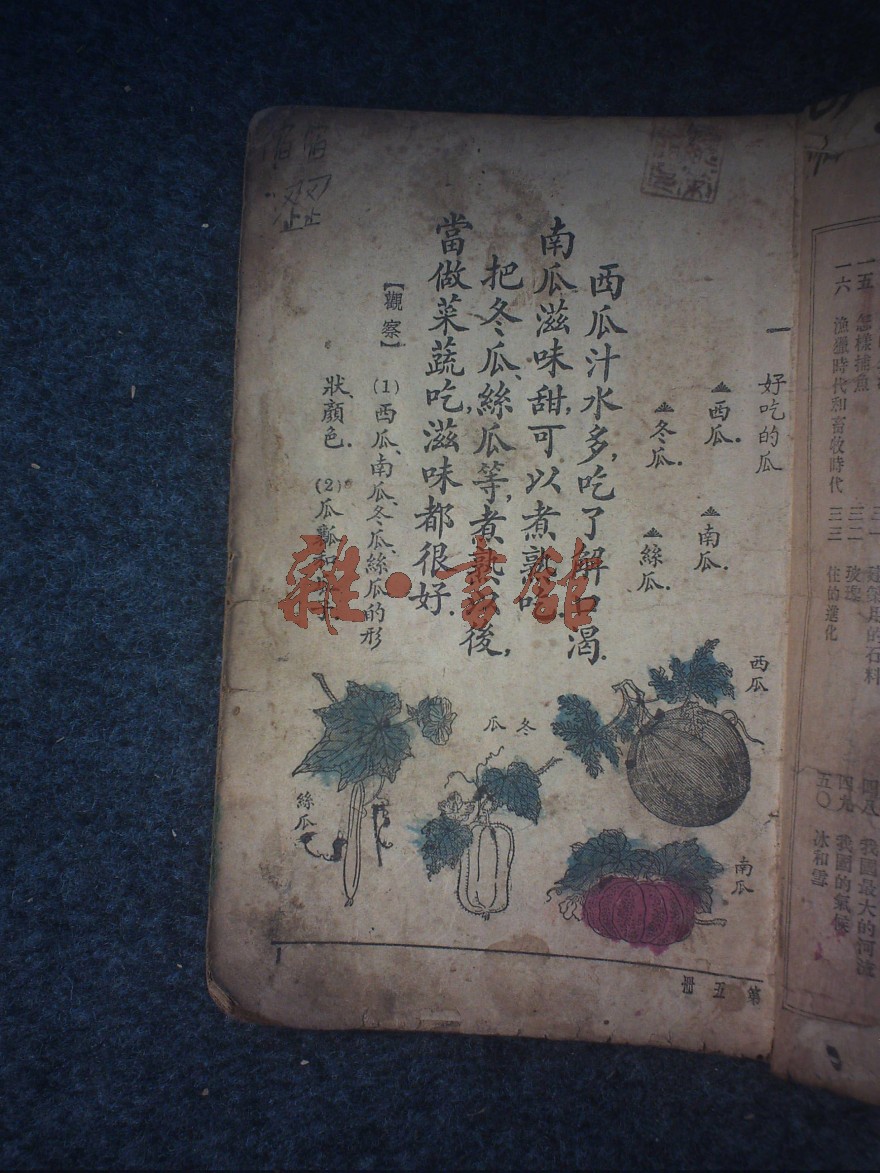 一 好吃的瓜
西瓜. 南瓜.
冬瓜. 絲瓜.
西瓜汁水多,吃了解口渴.
南瓜滋味甜,可以煮熟吃.
把冬瓜、絲瓜等,煮熟以後,
當做菜蔬吃,滋味都很好.
【觀察】 (1)西瓜、南瓜、冬瓜、絲瓜的形
狀、顏色. (2)瓜瓤和
西瓜
南瓜
冬瓜
絲瓜
第五册
1
一五 怎樣捕魚
一六 漁獵時代和畜牧時代
三二 玻璃
三三 住的進化
我國最大的河流
四九 我國的氣候
五〇 冰和雪
雜·書館